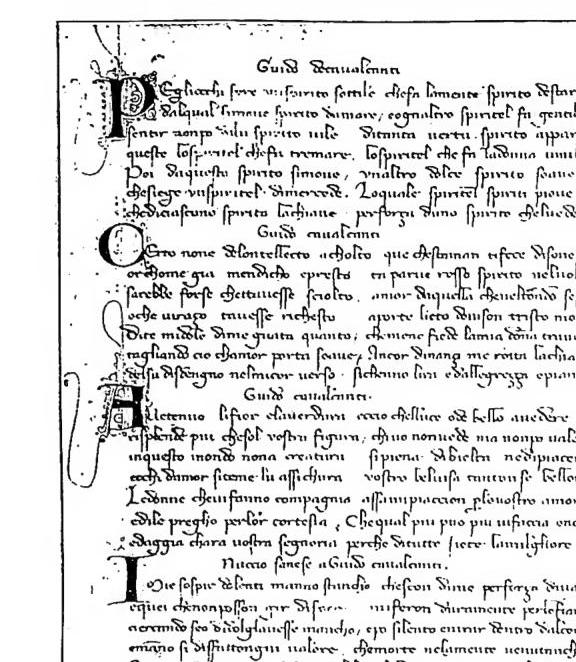 Guido decaualcanti
PEgliocchi fere unspirito sottile chefa lamente spirito destar
dalqual simoue spirito damare, eognaltro spiritel fa gentil
sentir nonpo dilui spirito uile ditanta uertu spirito appar
questo lospiritel chefa tremare, lospiritel che fa ladonna umil
Poi daquesto spirito simoue, unaltro dolce spirito soaue
chesiegue unspiritel dimercede, Loquale spiritel spiriti pioue
chediciascuno spirito lachiaue perforza duno spirito cheluede
Guido caualcanti
CErto none delontellecto acholto que chestaman tifece disone
or chome gia mendicho epresto parue rosso spirito neluol
sarebbe forse chettauesse sciolto, amor daquella cheneltondo se
oche uiraço tauesse richesto aporte lieto ouison tristo
Dite midole dime guata quanto, chemene fiede lamia donna
tagliando cio chamor porta soaue, Ancor dinanzi me rotta lachia
delsu disdengno nelmicor uerso sichenno lira edallegrezza epian
Guido caualcanti
AUetenuo lifior elauerdura eccio chelluce ode bello auedere
risplende piu chesol uostra figura, chiuo nonuede ma nonpo uale
inquesto mondo nona creatura sipiena dibielta nedipiacer
echi damor siteme lu assichura uostro beluisa tantonse bello
Ledonne cheuifanno compagnia assaimipiaccion perlouostro amor
edile pregho perlor cortesia, Chequal piu puo piu uifaccia ono
edaggia chara uostra segnoria perche ditutte siete lamigliore
Nuccio sanese a Guido caualcanti.
IOmie sospir dolenti manno stancho chescon dime perforza diua
equei chenonposson miferon duramente perlefian
cercando seo dadolglauesse mancho, epo silento entrar dentro dalco
emano si disfattongni ualore, chemorte nelamente